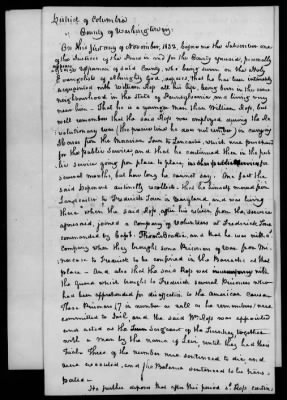 District of Columbia
County of Washington
On this first day of November, 1832, before me the Subscriber one
of the Justices of the Peace in and for the County aforesaid, personally
appeared of said County, who being sworn on the Holy
Evangelists of Almighty God, deposes, that he has been intimately
acquainted with William Rose all his life, being born in the same
neighbourhood in the State of Pennsylvania and living ever
near him. That he is a younger man than William Rose, but
well remembers that the said Rose was employed during the Re-
volutionary war (the precise time he does not remember) in carrying
Stores from the to Lancaster, which was purchased
for the public service, and that he continued then in the pub-
lic service going from place to place, for
several months, but how long he cannot say. One fact the
said deponent distinctly recollects, that he himself moved from
Pennsylvania to Frederick Town in Maryland and was living
there when the said Rose after his return from the service
aforesaid, joined a Company of Volunteers at Frederick Town
commanded by Capt. and that he was with s.d
Company when they brought some Prisoners of war from
to Frederick to be confined in the Barracks at that
place. And also that the said Rose was with
the Guard which brought to Frederick several Prisoners who
had been apprehended for disaffection to the American Cause.
These Prisoners (7 in number as well as he remembers) were
committed to Jail, and the said Wm Rose was appointed
and acted as the of the Turnkey together
with a man by the name of until they had their
Trials. Three of the number were sentenced to die, and
were executed, and the Balance sentenced to be trans-
ported.
He further deposes that after this period s.d Rose contin-